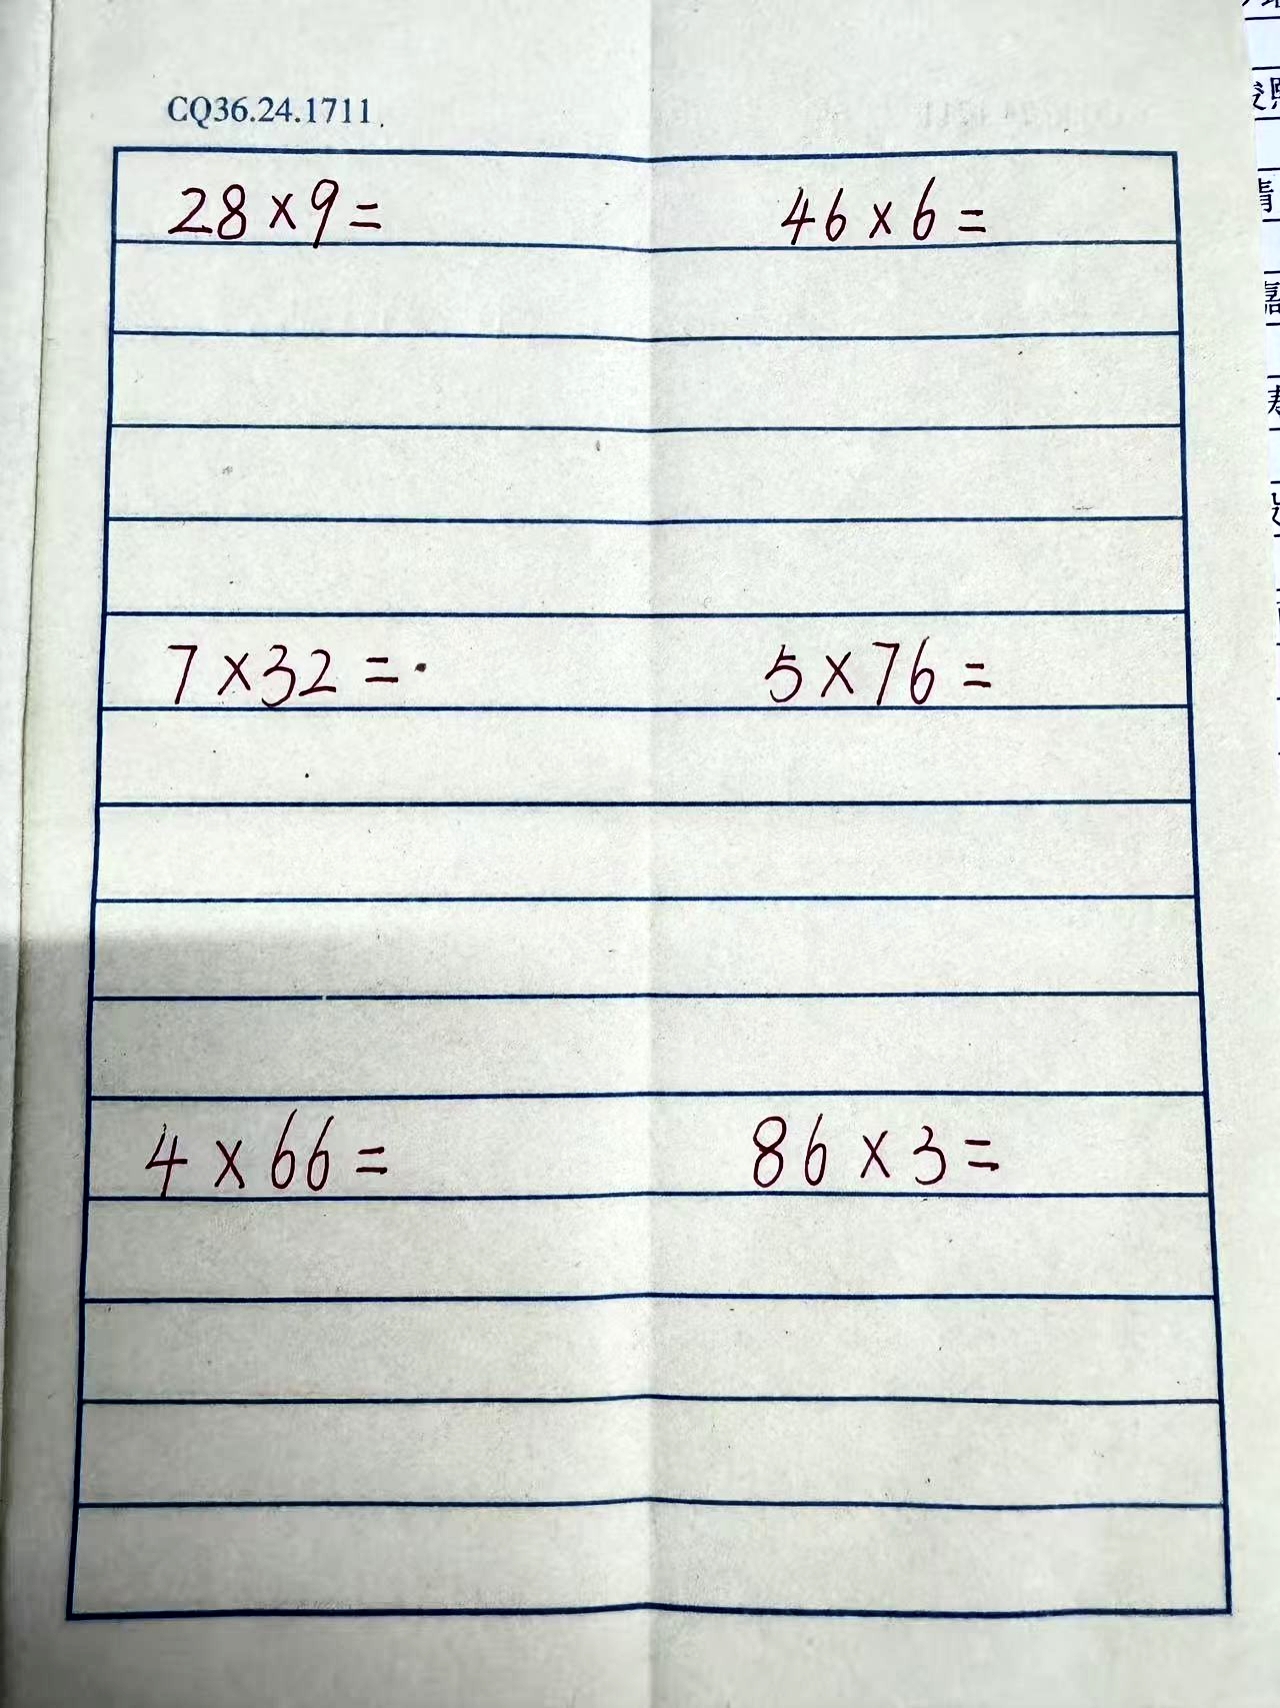 CQ36.24.1711
28×9= 46×6=
7×32= 5×76=
4×66= 86×3=